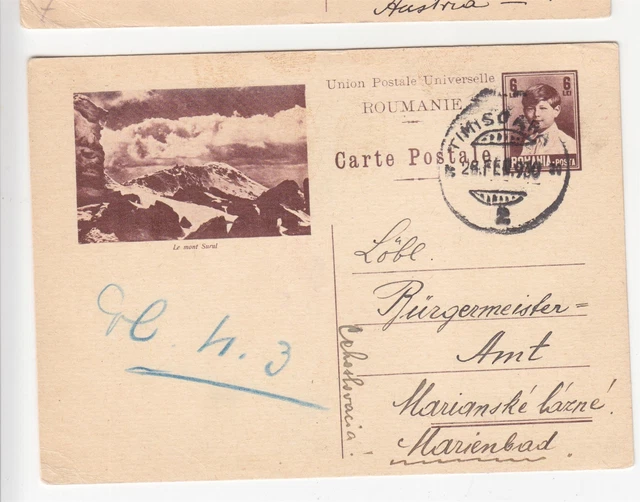 Austria -
Union Postale Universelle
ROUMANIE
Carte Postale
6 6
LEI LEI
ROMANIA-POSTA
TIMISOARA
2
Le mont Surul
Löbl.
Bürgermeister=
Amt
Marianské lázné.
Marienbad.
Cehoslovacia!
N. 3